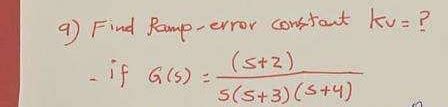 9) Find Ramp-error constant kv = ?
- if G(s) = (s+2)
s(s+3)(s+4)